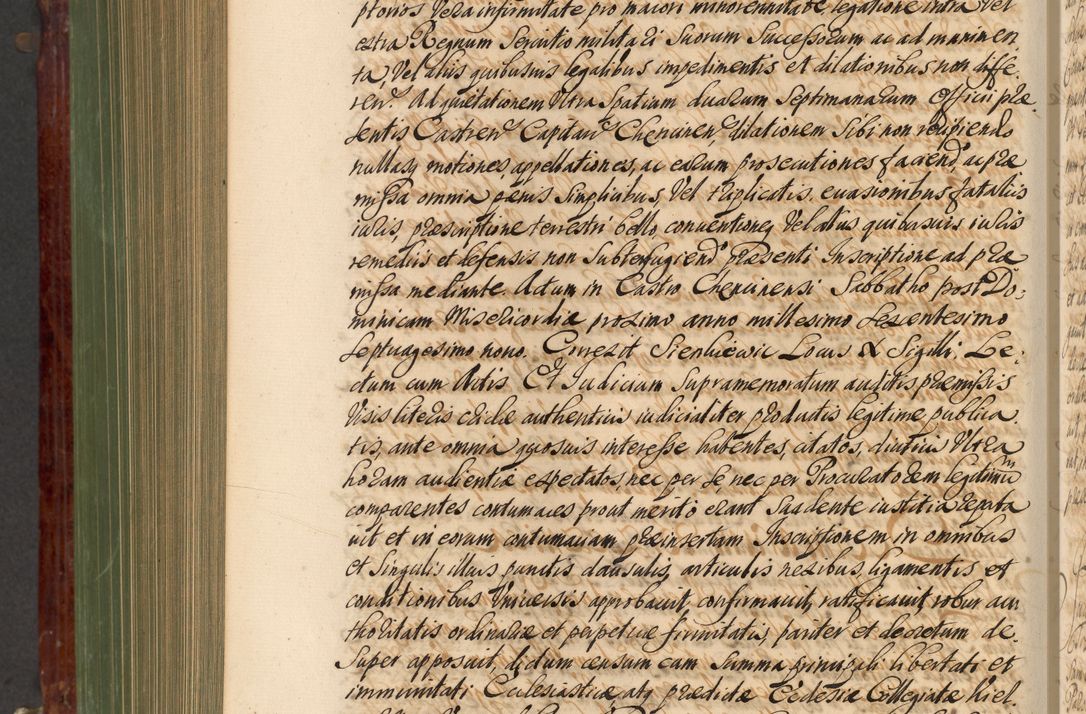 ptorios vera infirmitate pro maiori minorennitate legatione intra vel
extra Regnum Servitio militari Suorum Successorum ac ad manum en
ta, vel aliis quibusvis legalibus impedimentis et dilationibus non diffe-
ren: Ad quietationem Ultra Spatium duarum Septimanarum officii præ
sentis Castren Capitan Chencinen, dilationem Sibi non recipiendo
nullasq motiones, appellationes, ac earum prosecutiones faciend, ac præ
missa omnia pænis Singlicibus, vel triplicatis, evasionibus fataliis
iuris, præscriptione terrestri bello, conventioneq vel aliis quibusvis iuris
remediis et defensis non Subterfugiend præsenti Inscriptione ad præ
missa mediante. Actum in Castro Chencinensi Sabbatho post Do:
minicam Misericordiæ proximo anno millesimo Sexcentesimo
Septuagesimo nono. Correxit Sienkiewic Locus & Sigilli, Le-
ctum cum Actis Et Iudicium Supramemoratum auditis præmissis
visis literis authenticis iudicialiter productis legitime publica
tis, ante omnia quosuis interesse habentes, citatos, diutius Ultra
horam audientiæ expectatos, nec per Se, nec per Procuratorem legitimu
comparentes contumaces prout merito erant Suadente iustitia reputa
uit et in eorum contumaciam præinsertam Inscriptionem in omnibus
et Singulis illius punctis clausulis, articulis nexibus, ligamentis et
conditionibus Universis approbavit, confirmavit, ratificavit robur au
thoritatis ordinariæ et perpetuæ firmitatis, pariter et decretum de-
Super apposuit, dictum censum cum Summa principali libertati et
immunitati Ecclesiasticæ atq prædictæ Ecclesiæ Collegiatæ Kiel